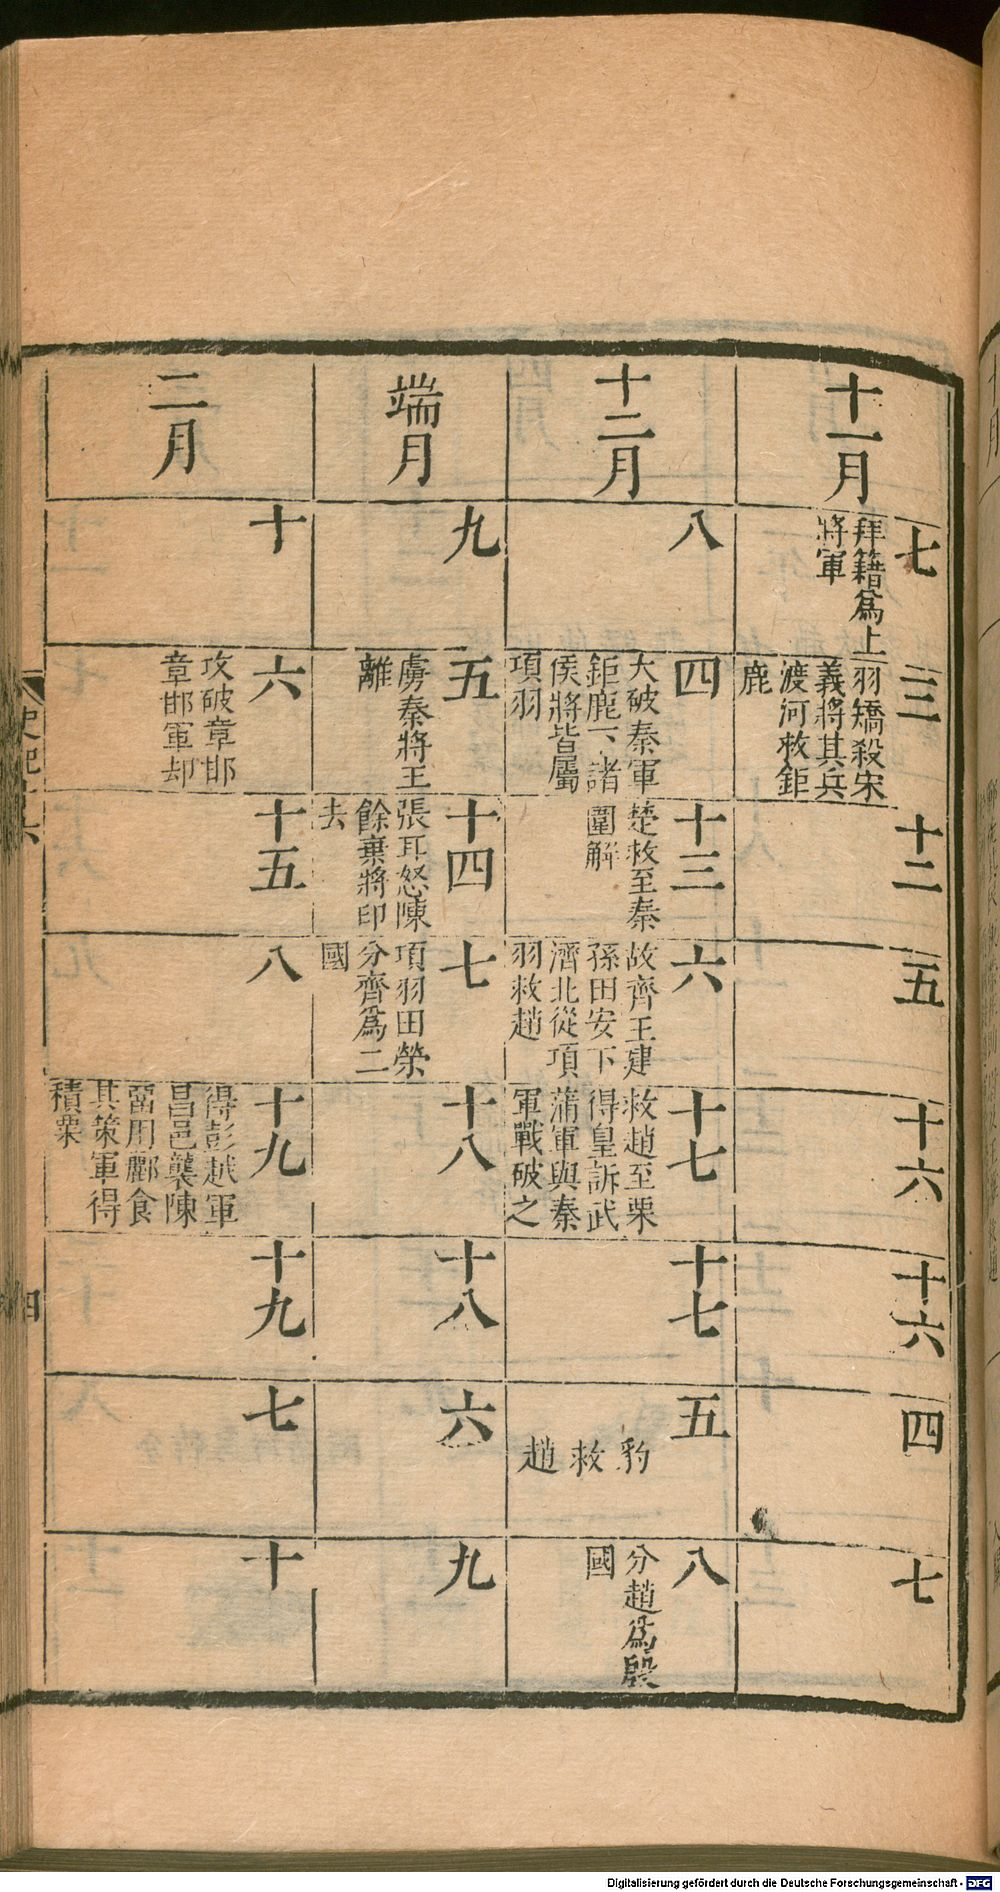 十一月
七
拜籍爲上
將軍
三
羽矯殺宋
義將其兵
渡河救鉅
鹿
十二
五
十六
十六
四
七
十二月
八
四
大破秦軍
鉅鹿下諸
侯將皆屬
項羽
十三
楚救至秦
圍解
六
故齊王建
孫田安下
濟北從項
羽救趙
十七
救趙至栗
得皇訴武
蒲軍與秦
軍戰破之
十七
五
豹救趙
八
分趙爲殷
國
端月
九
五
虜秦將王
離
十四
張耳怒陳
餘棄將印
去
七
項羽田榮
分齊爲二
國
十八
十八
六
九
二月
十
六
攻破章邯
章邯軍却
十五
八
十九
得彭越軍
昌邑襲陳
畱用酈食
其策軍得
積粟
十九
七
十
史記十六
四
Digitalisierung gefördert durch die Deutsche Forschungsgemeinschaft - DFG